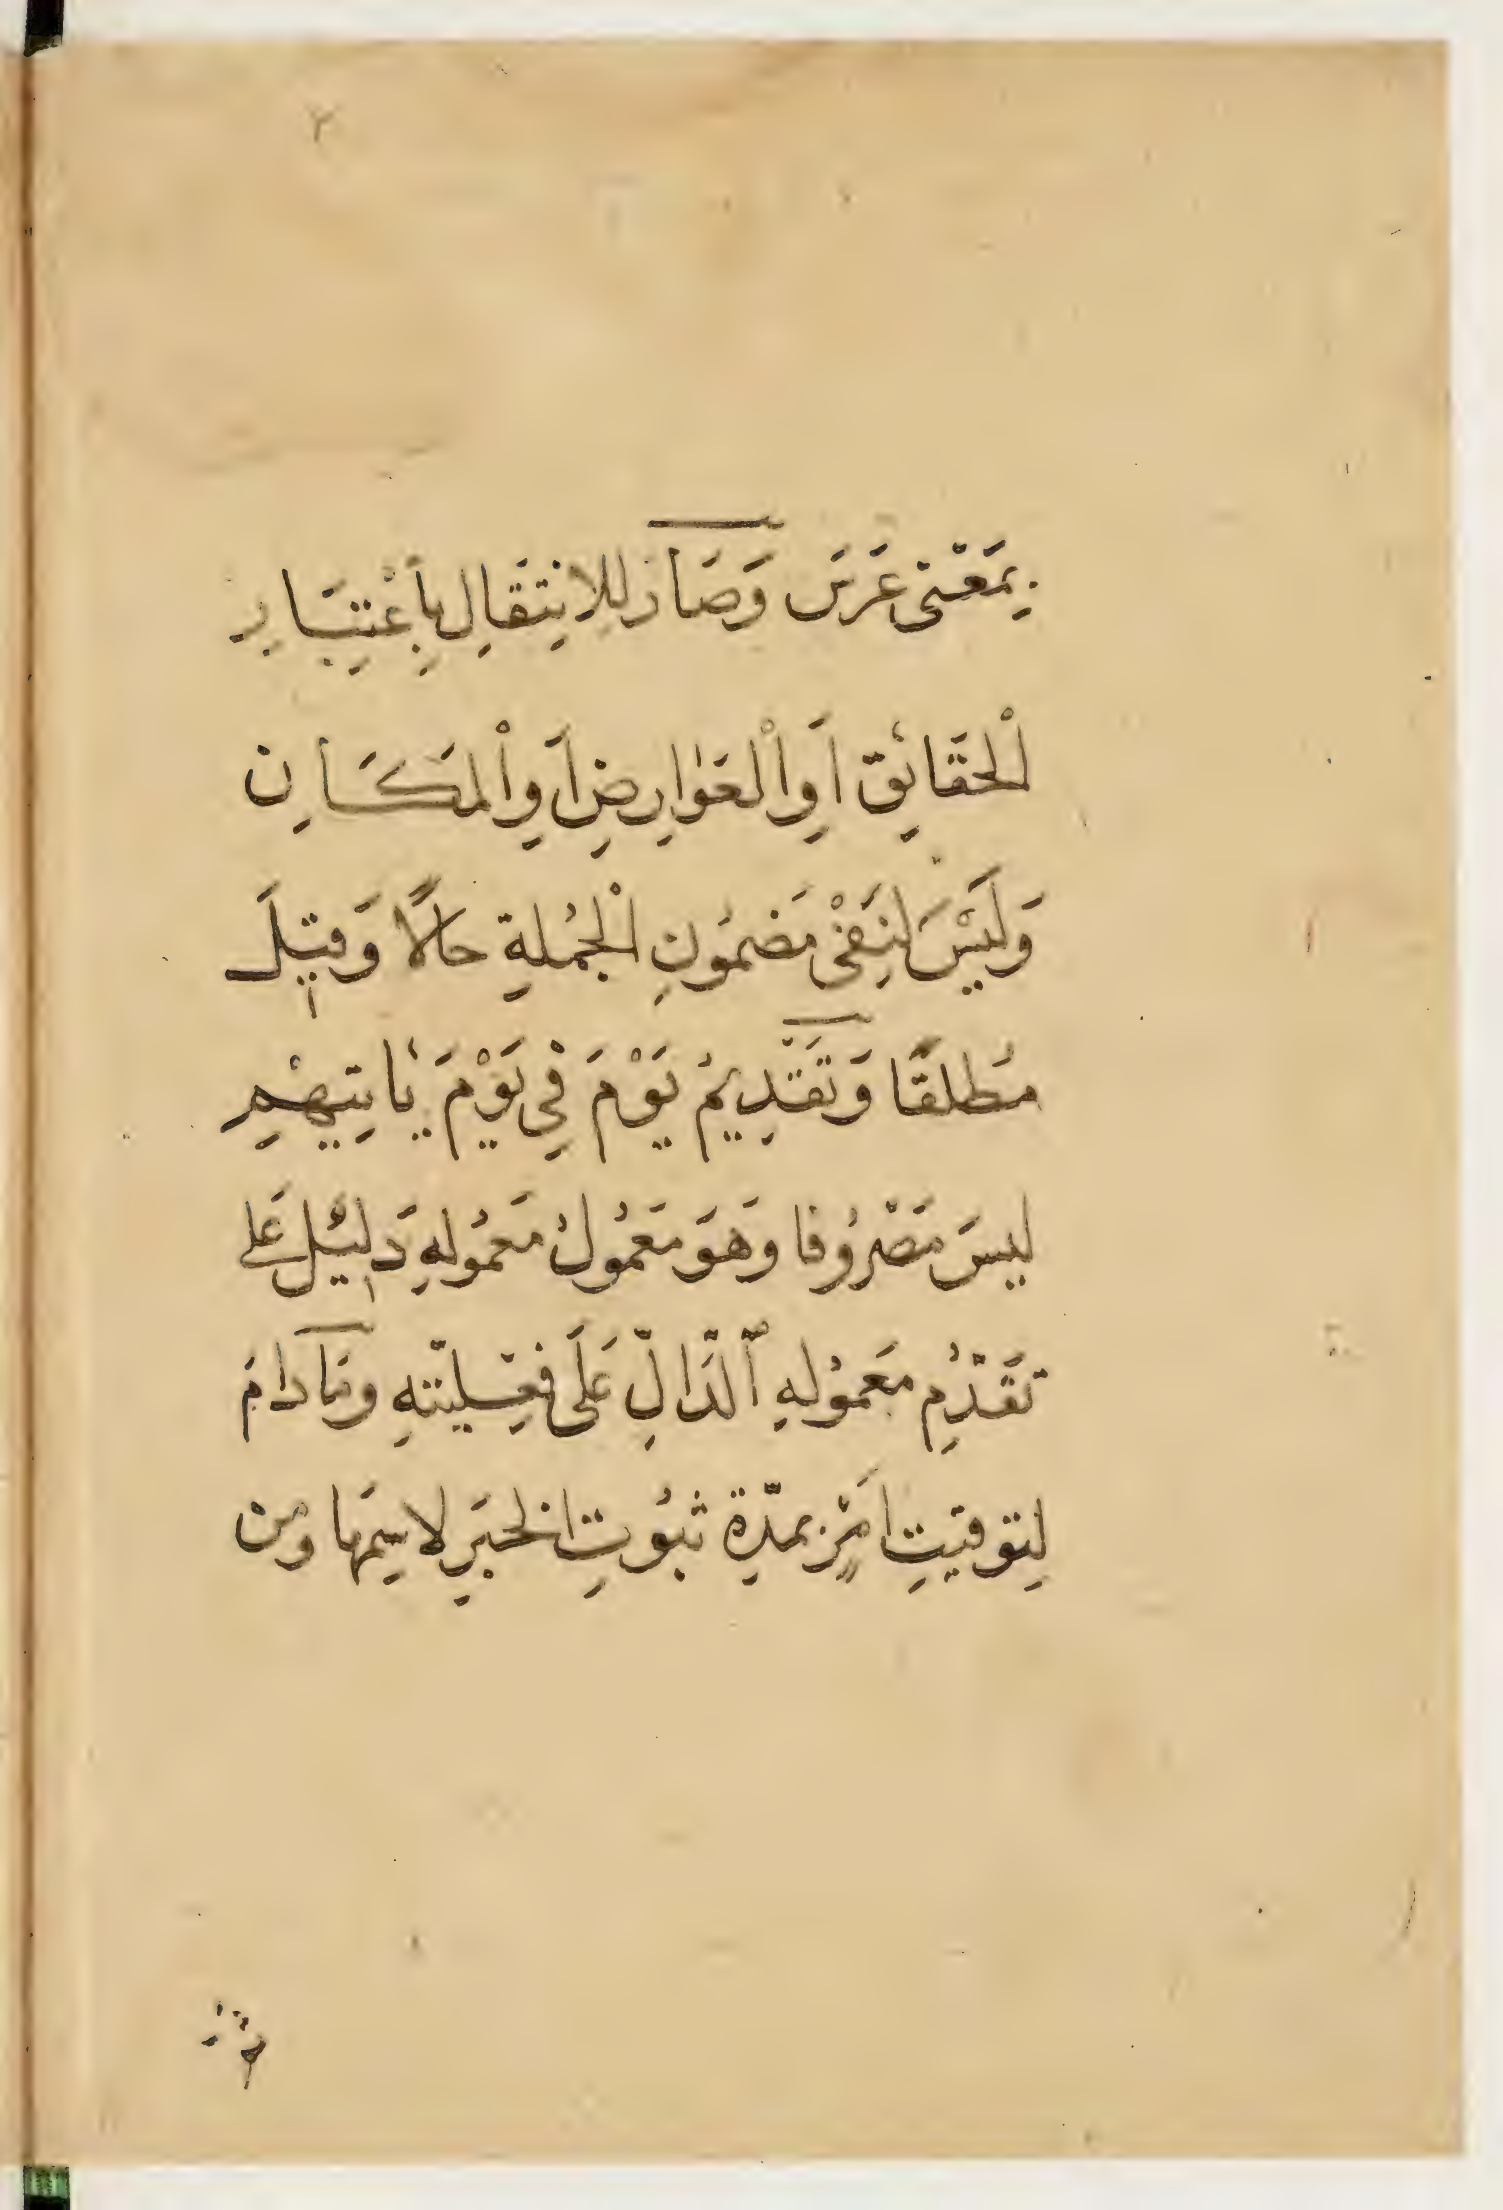 ٢
بِمَعْنٰى عَرَسَ وَصَارَ لِلِانْتِقَالِ بِاعْتِبَارِ
الْحَقَائِقِ اَوِ الْعَوَارِضِ اَوِ الْمَكَانِ
وَلَيْسَ لِنَفْىِ مَضْمُونِ الْجُمْلَةِ حَالًا وَقِيلَ
مُطْلَقًا وَتَقْدِيمُ يَوْمَ فِى يَوْمَ يَأْتِيهِمْ
لَيْسَ مَصْرُوفًا وَهُوَ مَعْمُولُ مَعْمُولِهِ دَلِيلٌ عَلَى
تَقَدُّمِ مَعْمُولِهِ الدَّالِّ عَلَى فِعْلِيَّتِهِ وَمَا دَامَ
لِتَوْقِيتِ اَمْرٍ بِمُدَّةِ ثُبُوتِ الْخَبَرِ لِاسْمِهَا وَمِنْ